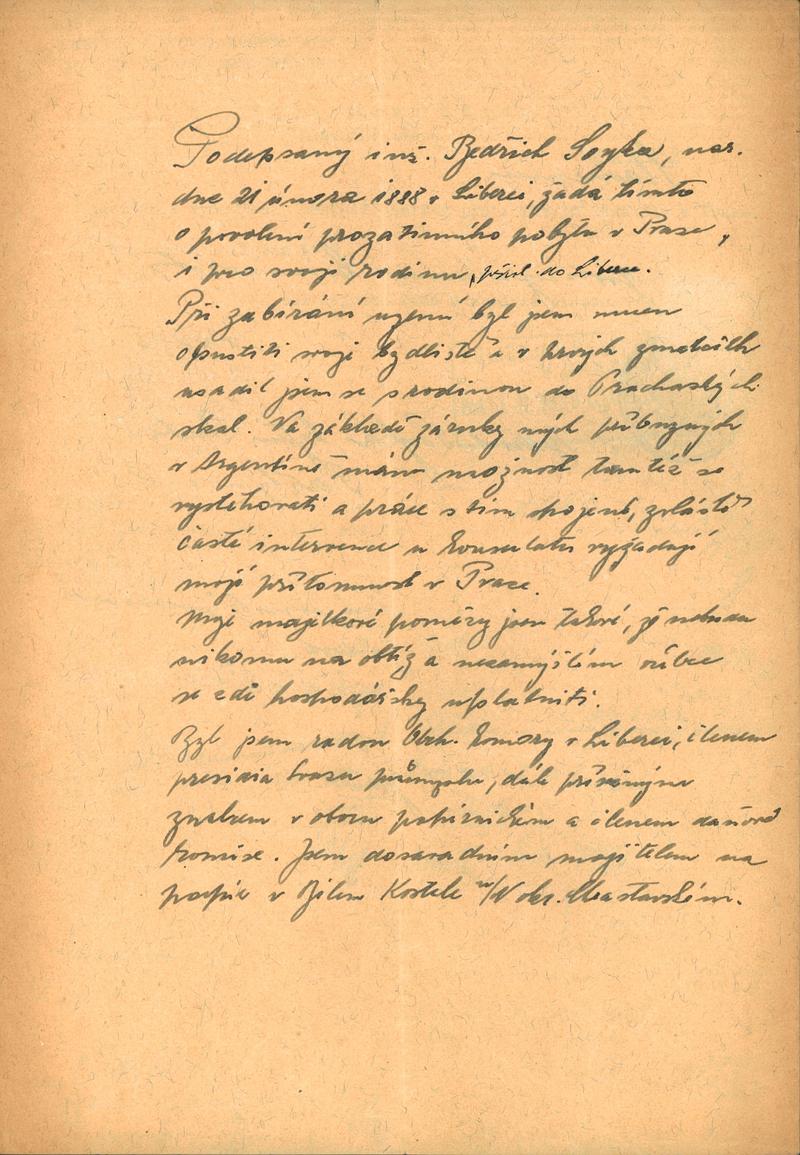 Podepsaný inž. Bedřich Soyka, nar.
dne 21 února 1888 v Liberci, žádá tímto
o povolení prozatimního pobytu v Praze,
i pro svoji rodinu, přísl. do Liberce.
Při zabírání území byl jsem nucen
opustiti svoji bydliště a v prvých zmatcích
usadil jsem se s rodinou do Prachovských
skal. Na základě záruky mých příbuzných
v Argentině mám možnost tamtéž se
vystěhovati a práce s tím spojené, zvláště
časté intervence u konsulatu vyžadují
mojí přítomnost v Praze.
Moje majetkové poměry jsou takové, že nebudu
nikomu na obtíž a nezamýšlím vůbec
se zde hospodářsky uplatniti.
Byl jsem radou Obch. komory v Liberci, členem
presidia svazu průmyslu, dále přísežným
znalcem v oboru papírnickém a členem daňové
komise. Jsem dosavadním majitelem na
papír v Bílem Kostele n/N okr.